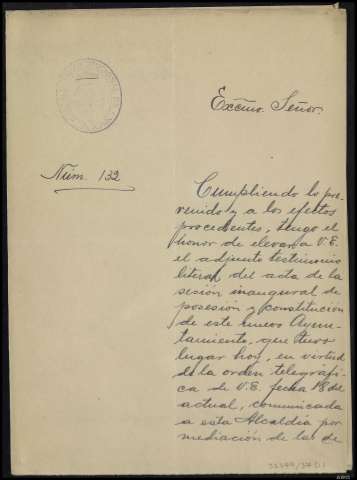 Excmo. Señor.
Núm. 132
Cumpliendo lo pre-
venido y a los efectos
procedentes, tengo el
honor de elevar a V.E.
el adjunto testimonio
literal del acta de la
sesión inaugural de
posesión y constitución
de este nuevo Ayun-
tamiento, que tuvo
lugar hoy, en virtud
de la orden telegráfi-
ca de V.E. fecha 18 del
actual, comunicada
a esta Alcaldía por
mediación de la de